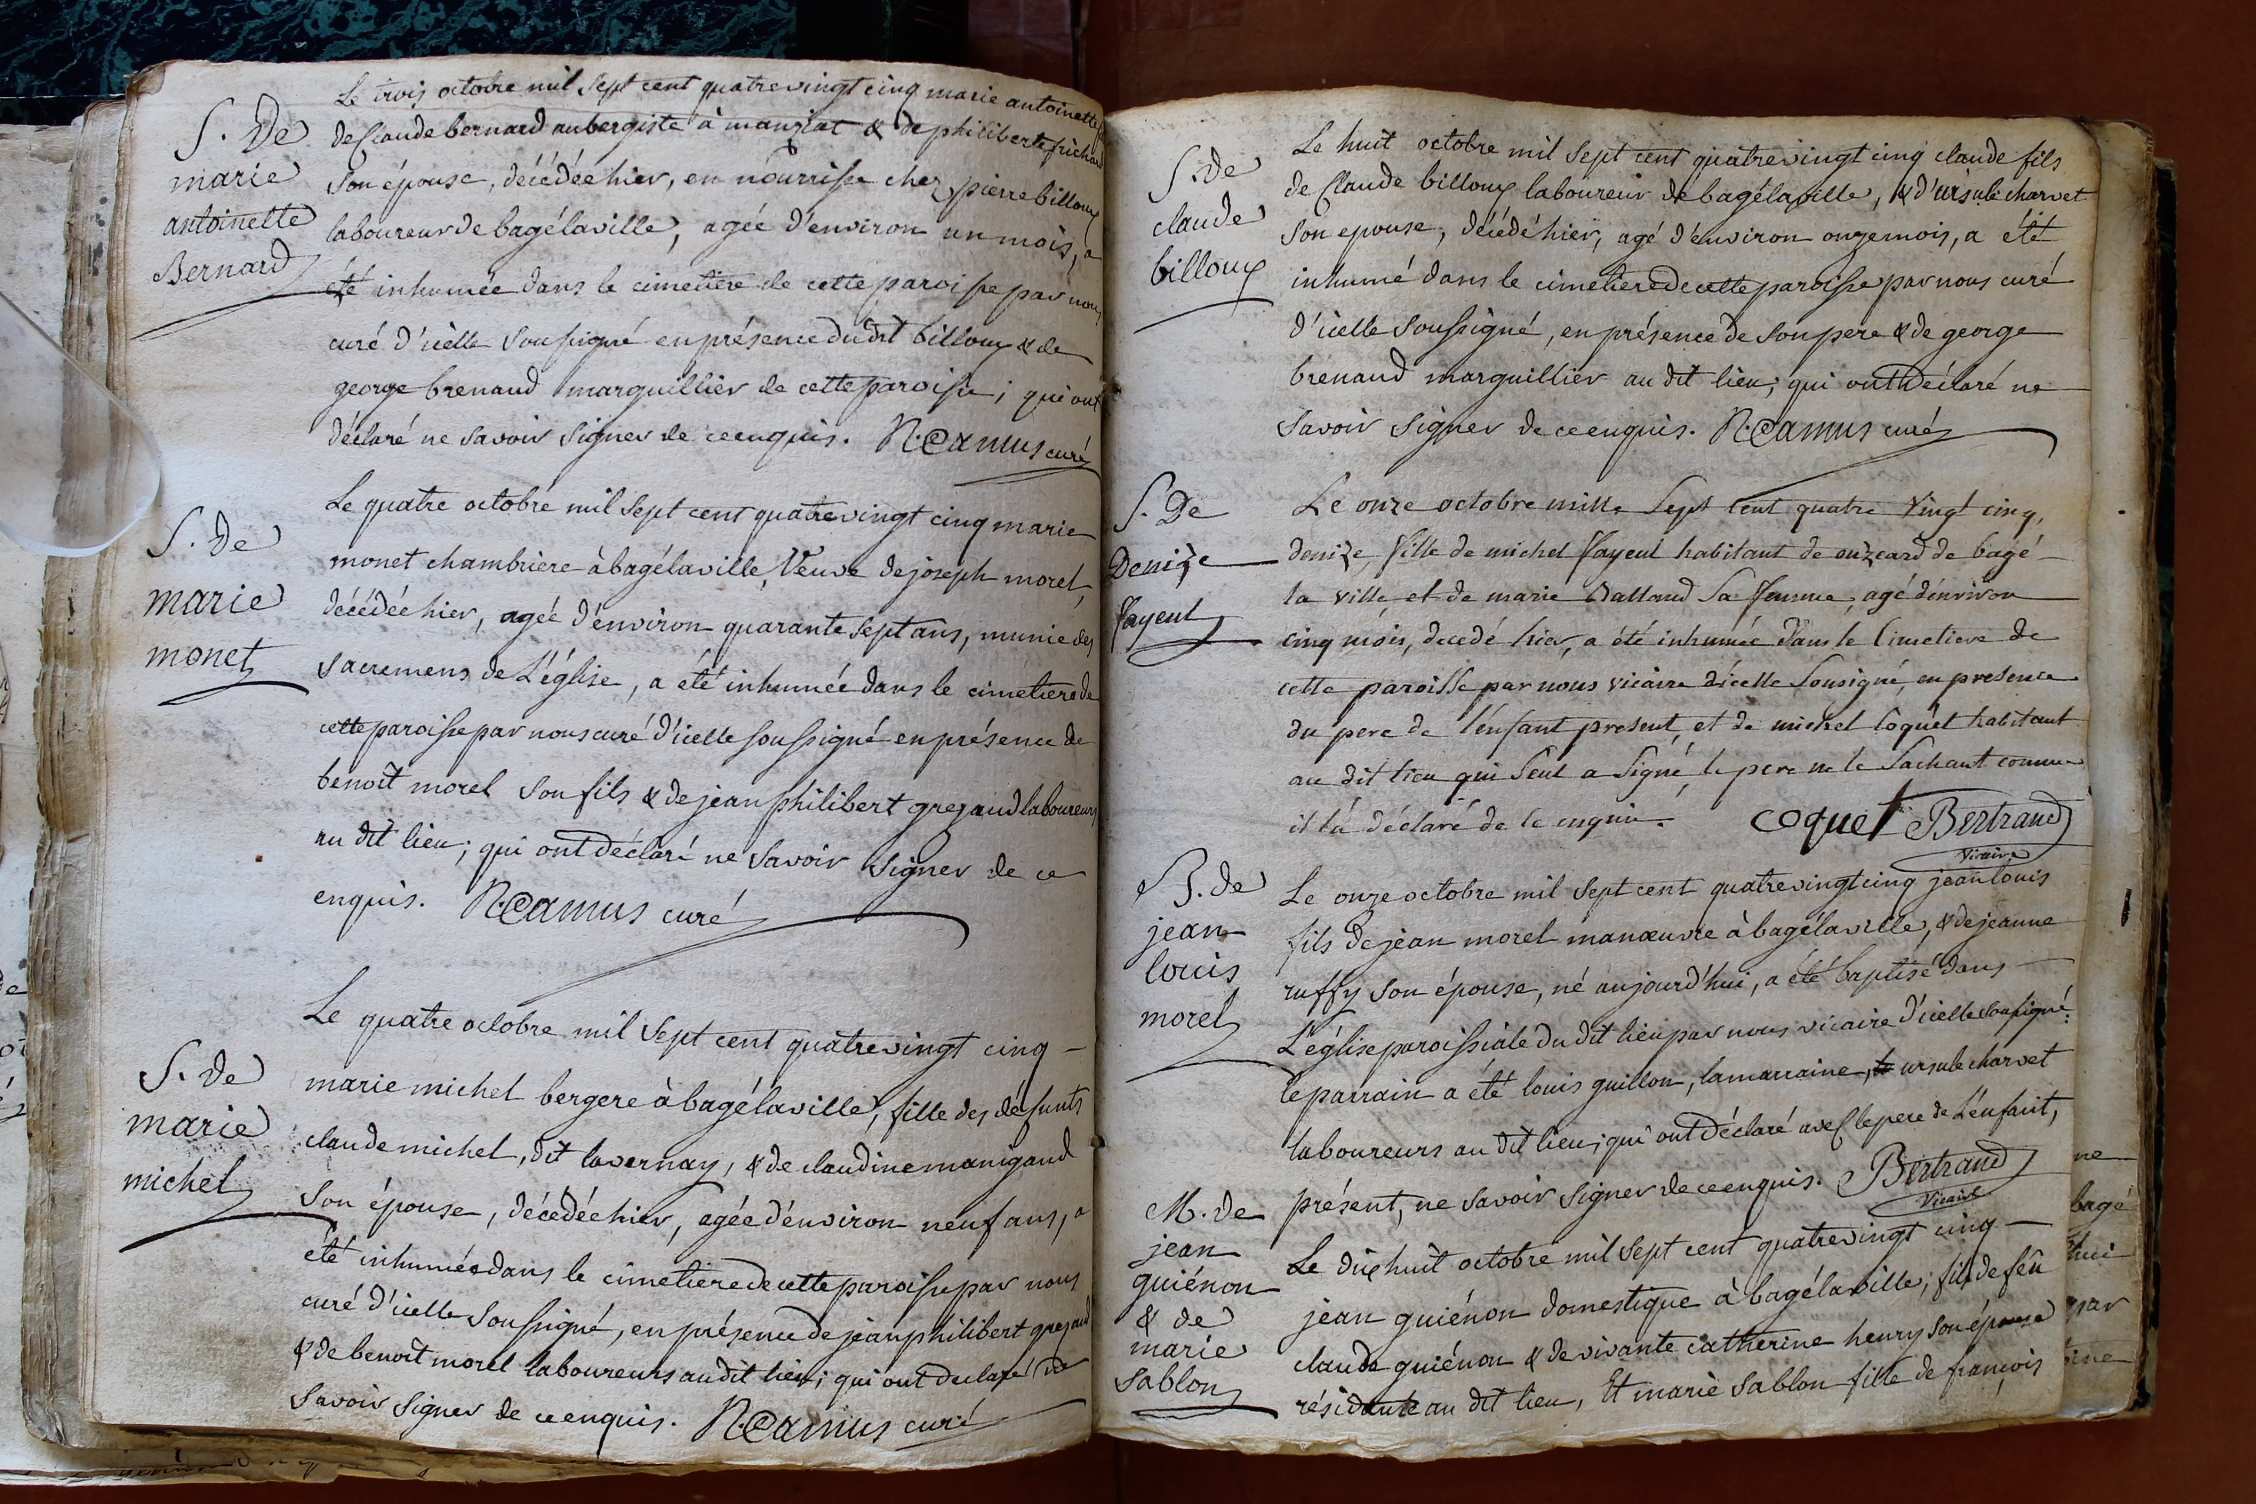 S. De
marie
antoinette
Bernard
Le trois octobre mil sept cent quatrevingt cinq marie antoinette
de Claude bernard aubergiste à manziat & de philiberte
son épouse, décédée hier, en nourrisse chez pierre billoux
laboureur de bagélaville, agée d'environ un mois, a
été inhumée dans le cimetière de cette paroisse par nous
curé d'icelle soussigné en présence dudit billoux & de
george brenaud marguillier de cette paroisse; qui ont
déclaré ne savoir signer de ce enquis. N. Camus curé
S. de
marie
monet
Le quatre octobre mil sept cent quatrevingt cinq marie
monet chambrière à bagélaville, veuve de joseph morel,
décédée hier, agée d'environ quarante sept ans, munie des
sacremens de L'église, a été inhumée dans le cimetiere de
cette paroisse par nous curé d'icelle soussigné en présence de
benoît morel son fils & de jean philibert gregaud laboureurs
au dit lieu; qui ont déclaré ne savoir signer de ce
enquis. N. Camus curé
S. de
marie
michel
Le quatre octobre mil sept cent quatrevingt cinq
marie michel bergere à bagélaville, fille des défunts
claude michel, dit lavernay, & de claudine manigand
son épouse, décédée hier, agée d'environ neuf ans, a
été inhumée dans le cimetiere de cette paroisse par nous
curé d'icelle soussigné, en présence de jean philibert gregaud
& de benoît morel laboureurs audit lieu; qui ont déclaré ne
savoir signer de ce enquis. N. Camus curé
S. de
claude
billoux
Le huit octobre mil sept cent quatrevingt cinq claude fils
de Claude billoux laboureur de bagélaville, & d'ursule charvet
son epouse, décédé hier, agé d'environ onze mois, a été
inhumé dans le cimetiere de cette paroisse par nous curé
d'icelle soussigné, en présence de son pere & de george
brenaud marguillier au dit lieu; qui ont déclaré ne
savoir signer de ce enquis. N. Camus curé
S. De
Denize
fayeul
Le onze octobre mille Sept Cent quatre vingt cinq,
denize, fille de michel fayeul habitant de onzeard de bagé
la ville, et de marie Dalland sa femme, agé d'environ
cinq mois, decedé hier, a été inhumée dans le Cimetiere de
cette paroisse par nous vicaire d'icelle Sousigné, en presence
du pere de l'enfant present, et de michel Coquet habitant
au dit lieu qui Seul a Signé, le pere ne le Sachant comme
il l'a déclaré de ce enquis. coquet Bertrand
vicaire
B. de
jean
louis
morel
Le onze octobre mil sept cent quatrevingt cinq jean louis
fils de jean morel manœuvre à bagélaville, & de jeanne
ruffy son épouse, né aujourd'hui, a été baptisé dans
L'église paroissiale du dit lieu par nous vicaire d'icelle soussigné:
le parrain a été louis guillon, la marraine, ursule charvet
laboureurs au dit lieu; qui ont déclaré avec le pere de L'enfant,
présent, ne savoir signer de ce enquis. Bertrand
vicaire
M. de
jean
guiénon
& de
marie
sablon
Le dix huit octobre mil sept cent quatrevingt cinq
jean guiénon domestique à bagélaville; fils de feû
claude guiénon & de vivante catherine henry son épouse
résidante au dit lieu, Et marie sablon fille de françois
ne
bagé
hui
par